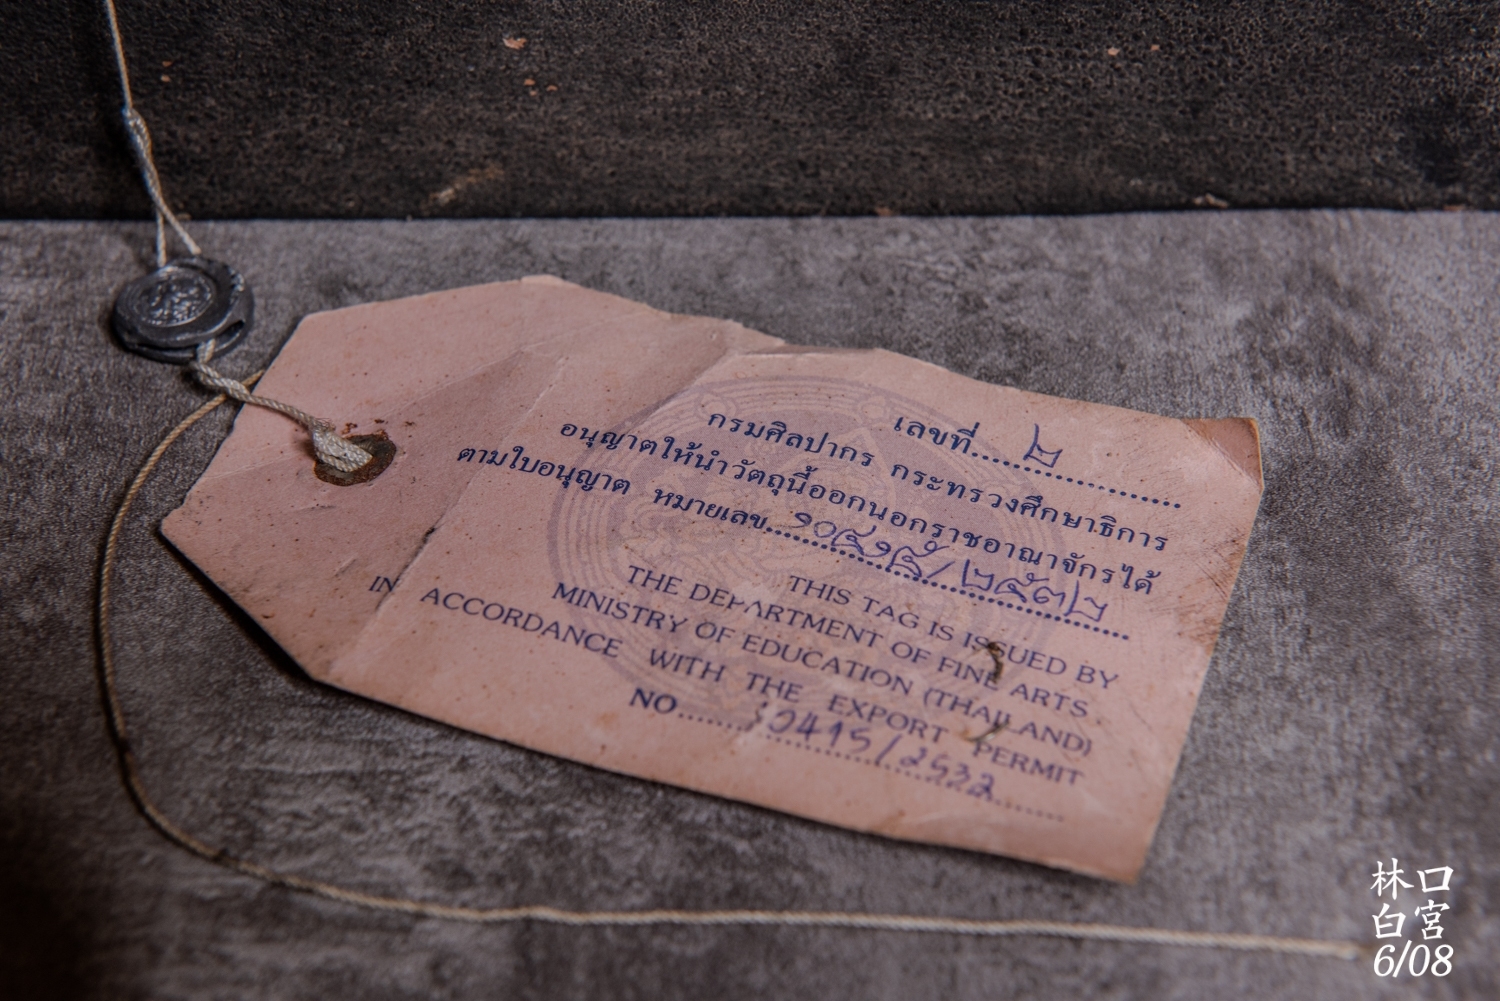 เลขที่ ๒
กรมศิลปากร กระทรวงศึกษาธิการ
อนุญาตให้นำวัตถุนี้ออกนอกราชอาณาจักรได้
ตามใบอนุญาต หมายเลข ๑๐๔๑๕/๒๕๓๒
THIS TAG IS ISSUED BY
THE DEPARTMENT OF FINE ARTS
MINISTRY OF EDUCATION (THAILAND)
IN ACCORDANCE WITH THE EXPORT PERMIT
NO. 10415/2532
林口
白宮
6/08